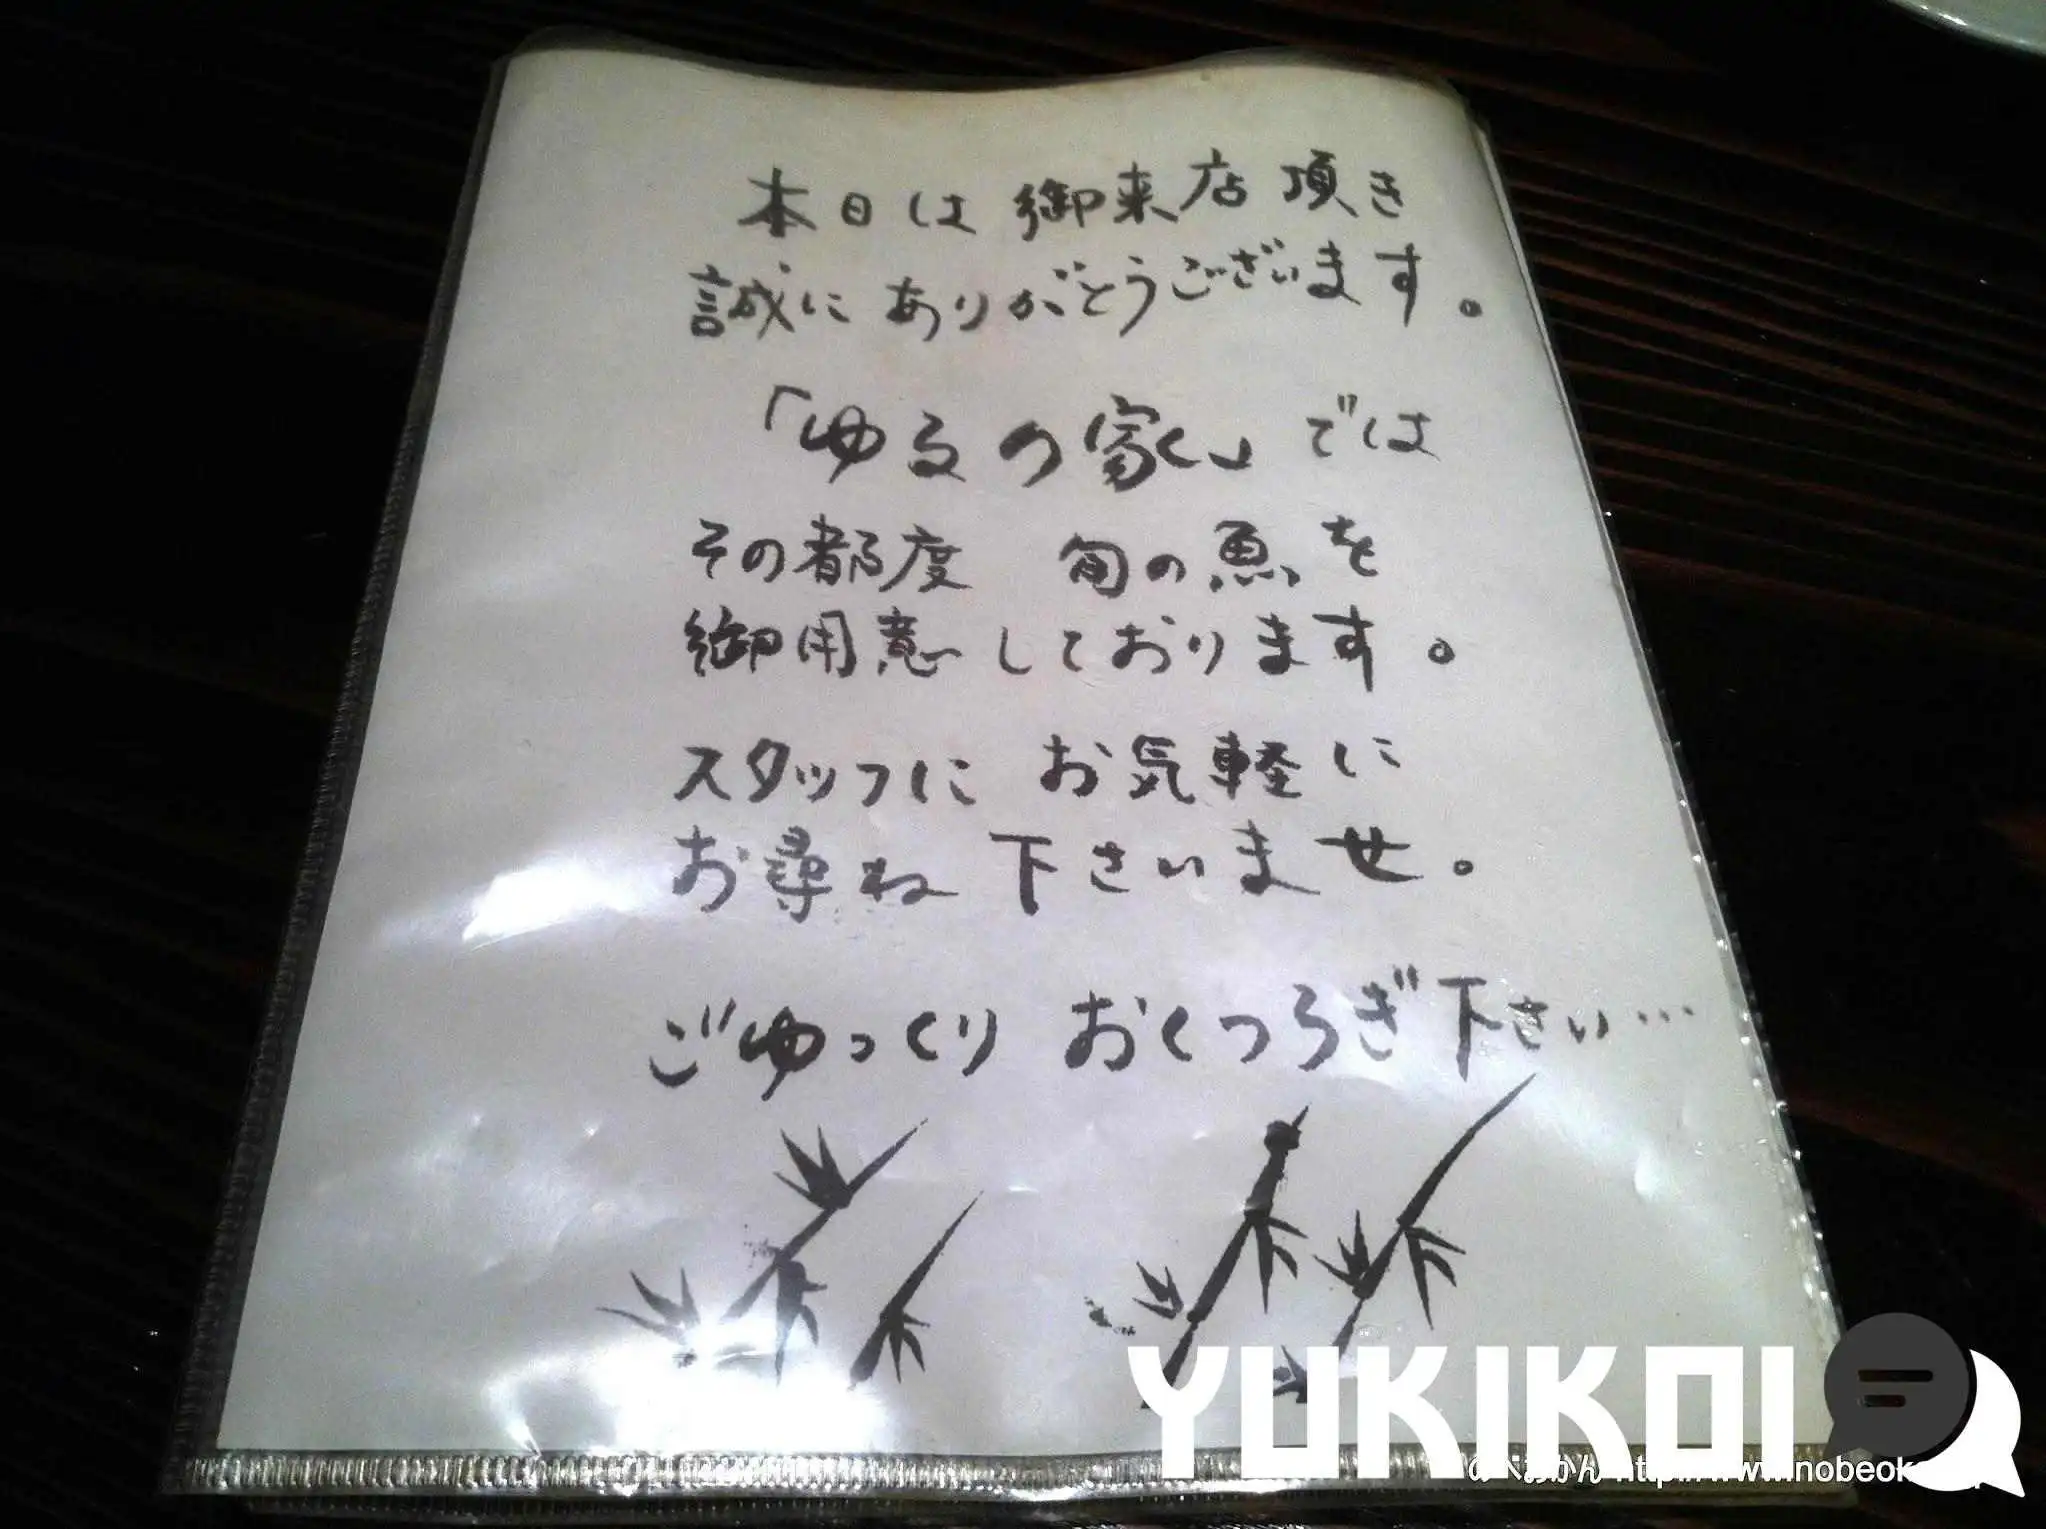 本日は 御来店 頂き
誠に ありがとうございます。
「ゆるの家く」では
その都度 旬の魚を
御用意しております。
スタッフに お気軽に
お尋ね 下さいませ。
ごゆっくり おくつろぎ下さい…
YUKIKOI
のべおかん http://www.nobeok